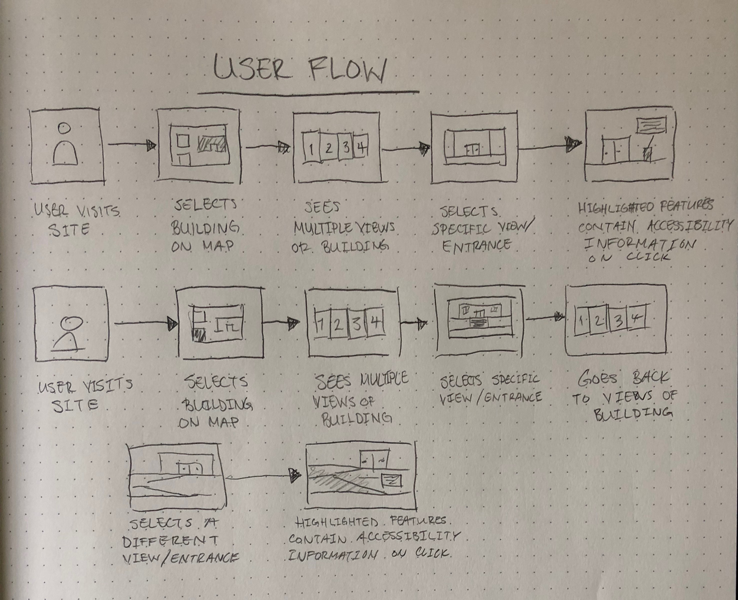 USER FLOW
1 2 3 4
USER VISITS
SITE
SELECTS
BUILDING
ON MAP
SEES
MULTIPLE VIEWS
OF BUILDING
SELECTS
SPECIFIC VIEW/
ENTRANCE
HIGHLIGHTED FEATURES
CONTAIN ACCESSIBILITY
INFORMATION
ON CLICK
1 2 3 4
1 2 3 4
USER VISITS
SITE
SELECTS
BUILDING
ON MAP
SEES MULTIPLE
VIEWS OF
BUILDING
SELECTS SPECIFIC
VIEW/ENTRANCE
GOES BACK
TO VIEWS OF
BUILDING
SELECTS A
DIFFERENT
VIEW/ENTRANCE
HIGHLIGHTED FEATURES
CONTAIN ACCESSIBILITY
INFORMATION ON CLICK.